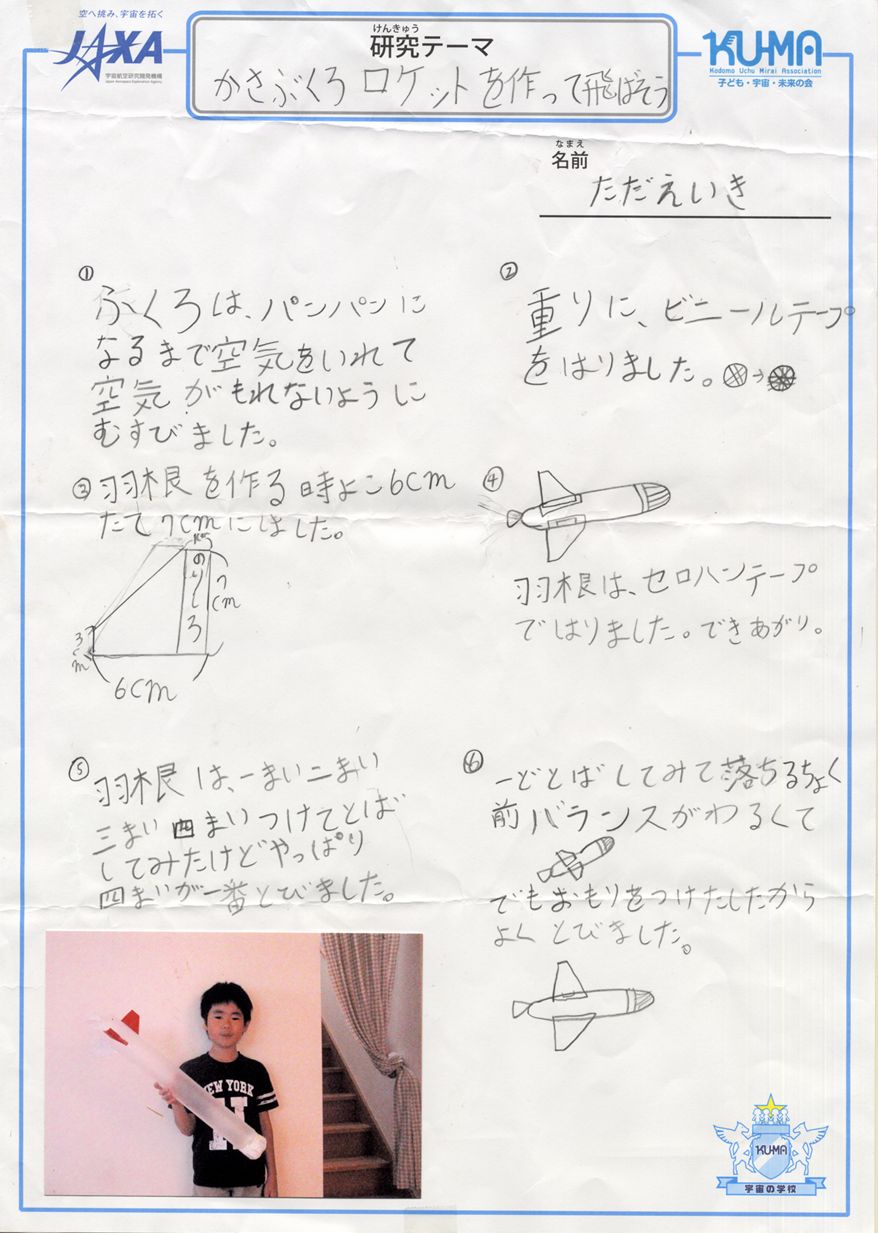 空へ挑み、宇宙を拓く
JAXA
宇宙航空研究開発機構
Japan Aerospace Exploration Agency
けんきゅう
研究テーマ
かさぶくろロケットを作って飛ばそう
KU-MA
Kodomo Uchu Mirai Association
子ども・宇宙・未来の会
なまえ
名前
ただえいき
①
ふくろは、パンパンに
なるまで空気をいれて
空気がもれないように
むすびました。
②
重りに、ビニールテープ
をはりました。→
③羽根を作る時よこ6cm
たて7cmにしました。
のりしろ
7cm
3cm
6cm
④
羽根は、セロハンテープ
ではりました。できあがり。
⑤
羽根は、一まい二まい
三まい四まいつけてとば
してみたけどやっぱり
四まいが一番とびました。
⑥
一どとばしてみて落ちるちょく
前バランスがわるくて
でもおもりをつけたしたから
よくとびました。
NEW YORK
KU-MA
宇宙の学校